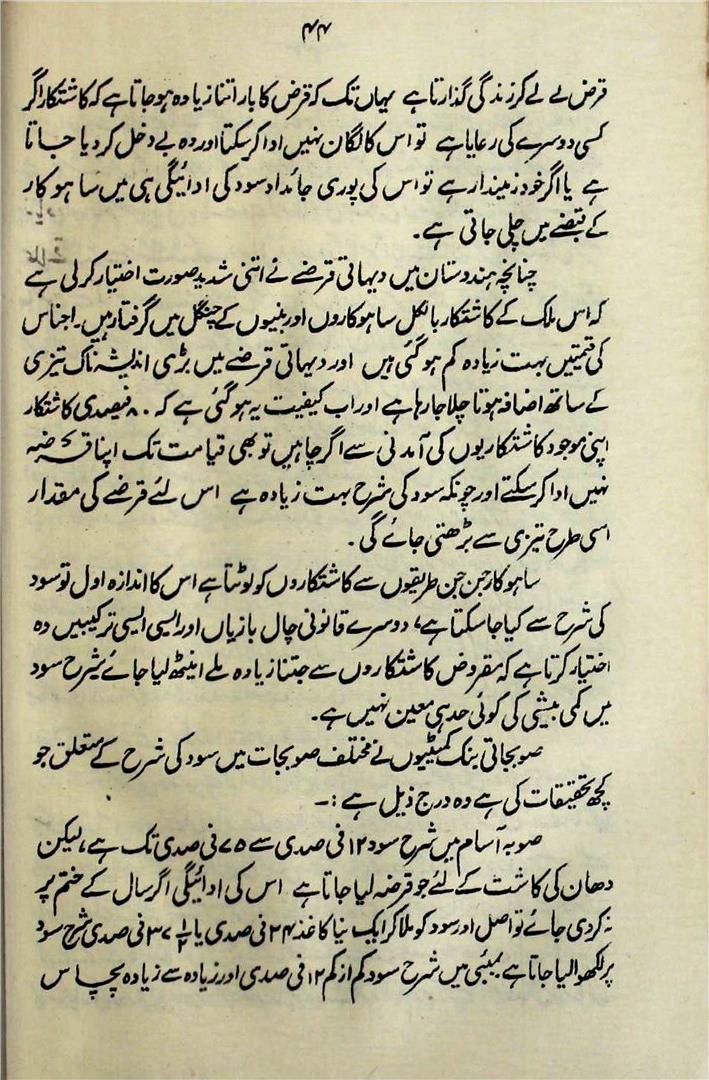 ۴۴
قرض لے لے کر زندگی گذارتا ہے یہاں تک کہ قرض کا بار اتنا زیادہ ہو جاتا ہے کہ کاشتکار اگر
کسی دوسرے کی رعایا ہے تو اس کا لگان نہیں ادا کر سکتا اور وہ بے دخل کر دیا جاتا
ہے یا اگر خود زمیندار ہے تو اس کی پوری جائداد سود کی ادائیگی ہی میں ساہوکار
کے قبضے میں چلی جاتی ہے۔
چنانچہ ہندوستان میں دیہاتی قرضے نے اتنی شدید صورت اختیار کر لی ہے
کہ اس ملک کے کاشتکار بالکل ساہوکاروں اور بنیوں کے چنگل میں گرفتار ہیں۔ اجناس
کی قیمتیں بہت زیادہ کم ہو گئی ہیں اور دیہاتی قرضے میں بڑی اندیشہ ناک تیزی
کے ساتھ اضافہ ہوتا چلا جا رہا ہے اور اب کیفیت یہ ہو گئی ہے کہ ۸۰ فیصدی کاشتکار
اپنی موجود کاشتکاریوں کی آمدنی سے اگر چاہیں تو بھی قیامت تک اپنا قرضہ
نہیں ادا کر سکتے اور چونکہ سود کی شرح بہت زیادہ ہے اس لئے قرضے کی مقدار
اسی طرح تیزی سے بڑھتی جائے گی۔
ساہوکار جن جن طریقوں سے کاشتکاروں کو لوٹتا ہے اس کا اندازہ اول تو سود
کی شرح سے کیا جا سکتا ہے، دوسرے قانونی چال بازیاں اور ایسی ایسی ترکیبیں وہ
اختیار کرتا ہے کہ مقروض کاشتکاروں سے جتنا زیادہ ملے اینٹھ لیا جائے شرح سود
میں کمی بیشی کی کوئی حد ہی معین نہیں ہے۔
صوبجاتی بنک کمیٹیوں نے مختلف صوبجات میں سود کی شرح کے متعلق جو
کچھ تحقیقات کی ہے وہ درج ذیل ہے :۔
صوبہ آسام میں شرح سود ۱۲ فی صدی سے ۷۵ فی صدی تک ہے، لیکن
دھان کی کاشت کے لئے جو قرضہ لیا جاتا ہے اس کی ادائیگی اگر سال کے ختم پر
نہ کر دی جائے تو اصل اور سود کو ملا کر ایک نیا کاغذ ۲۴ فی صدی یا ۳۷½ فی صدی شرح سود
پر لکھوا لیا جاتا ہے بمبئی میں شرح سود کم از کم ۱۲ فی صدی اور زیادہ سے زیادہ پچاس